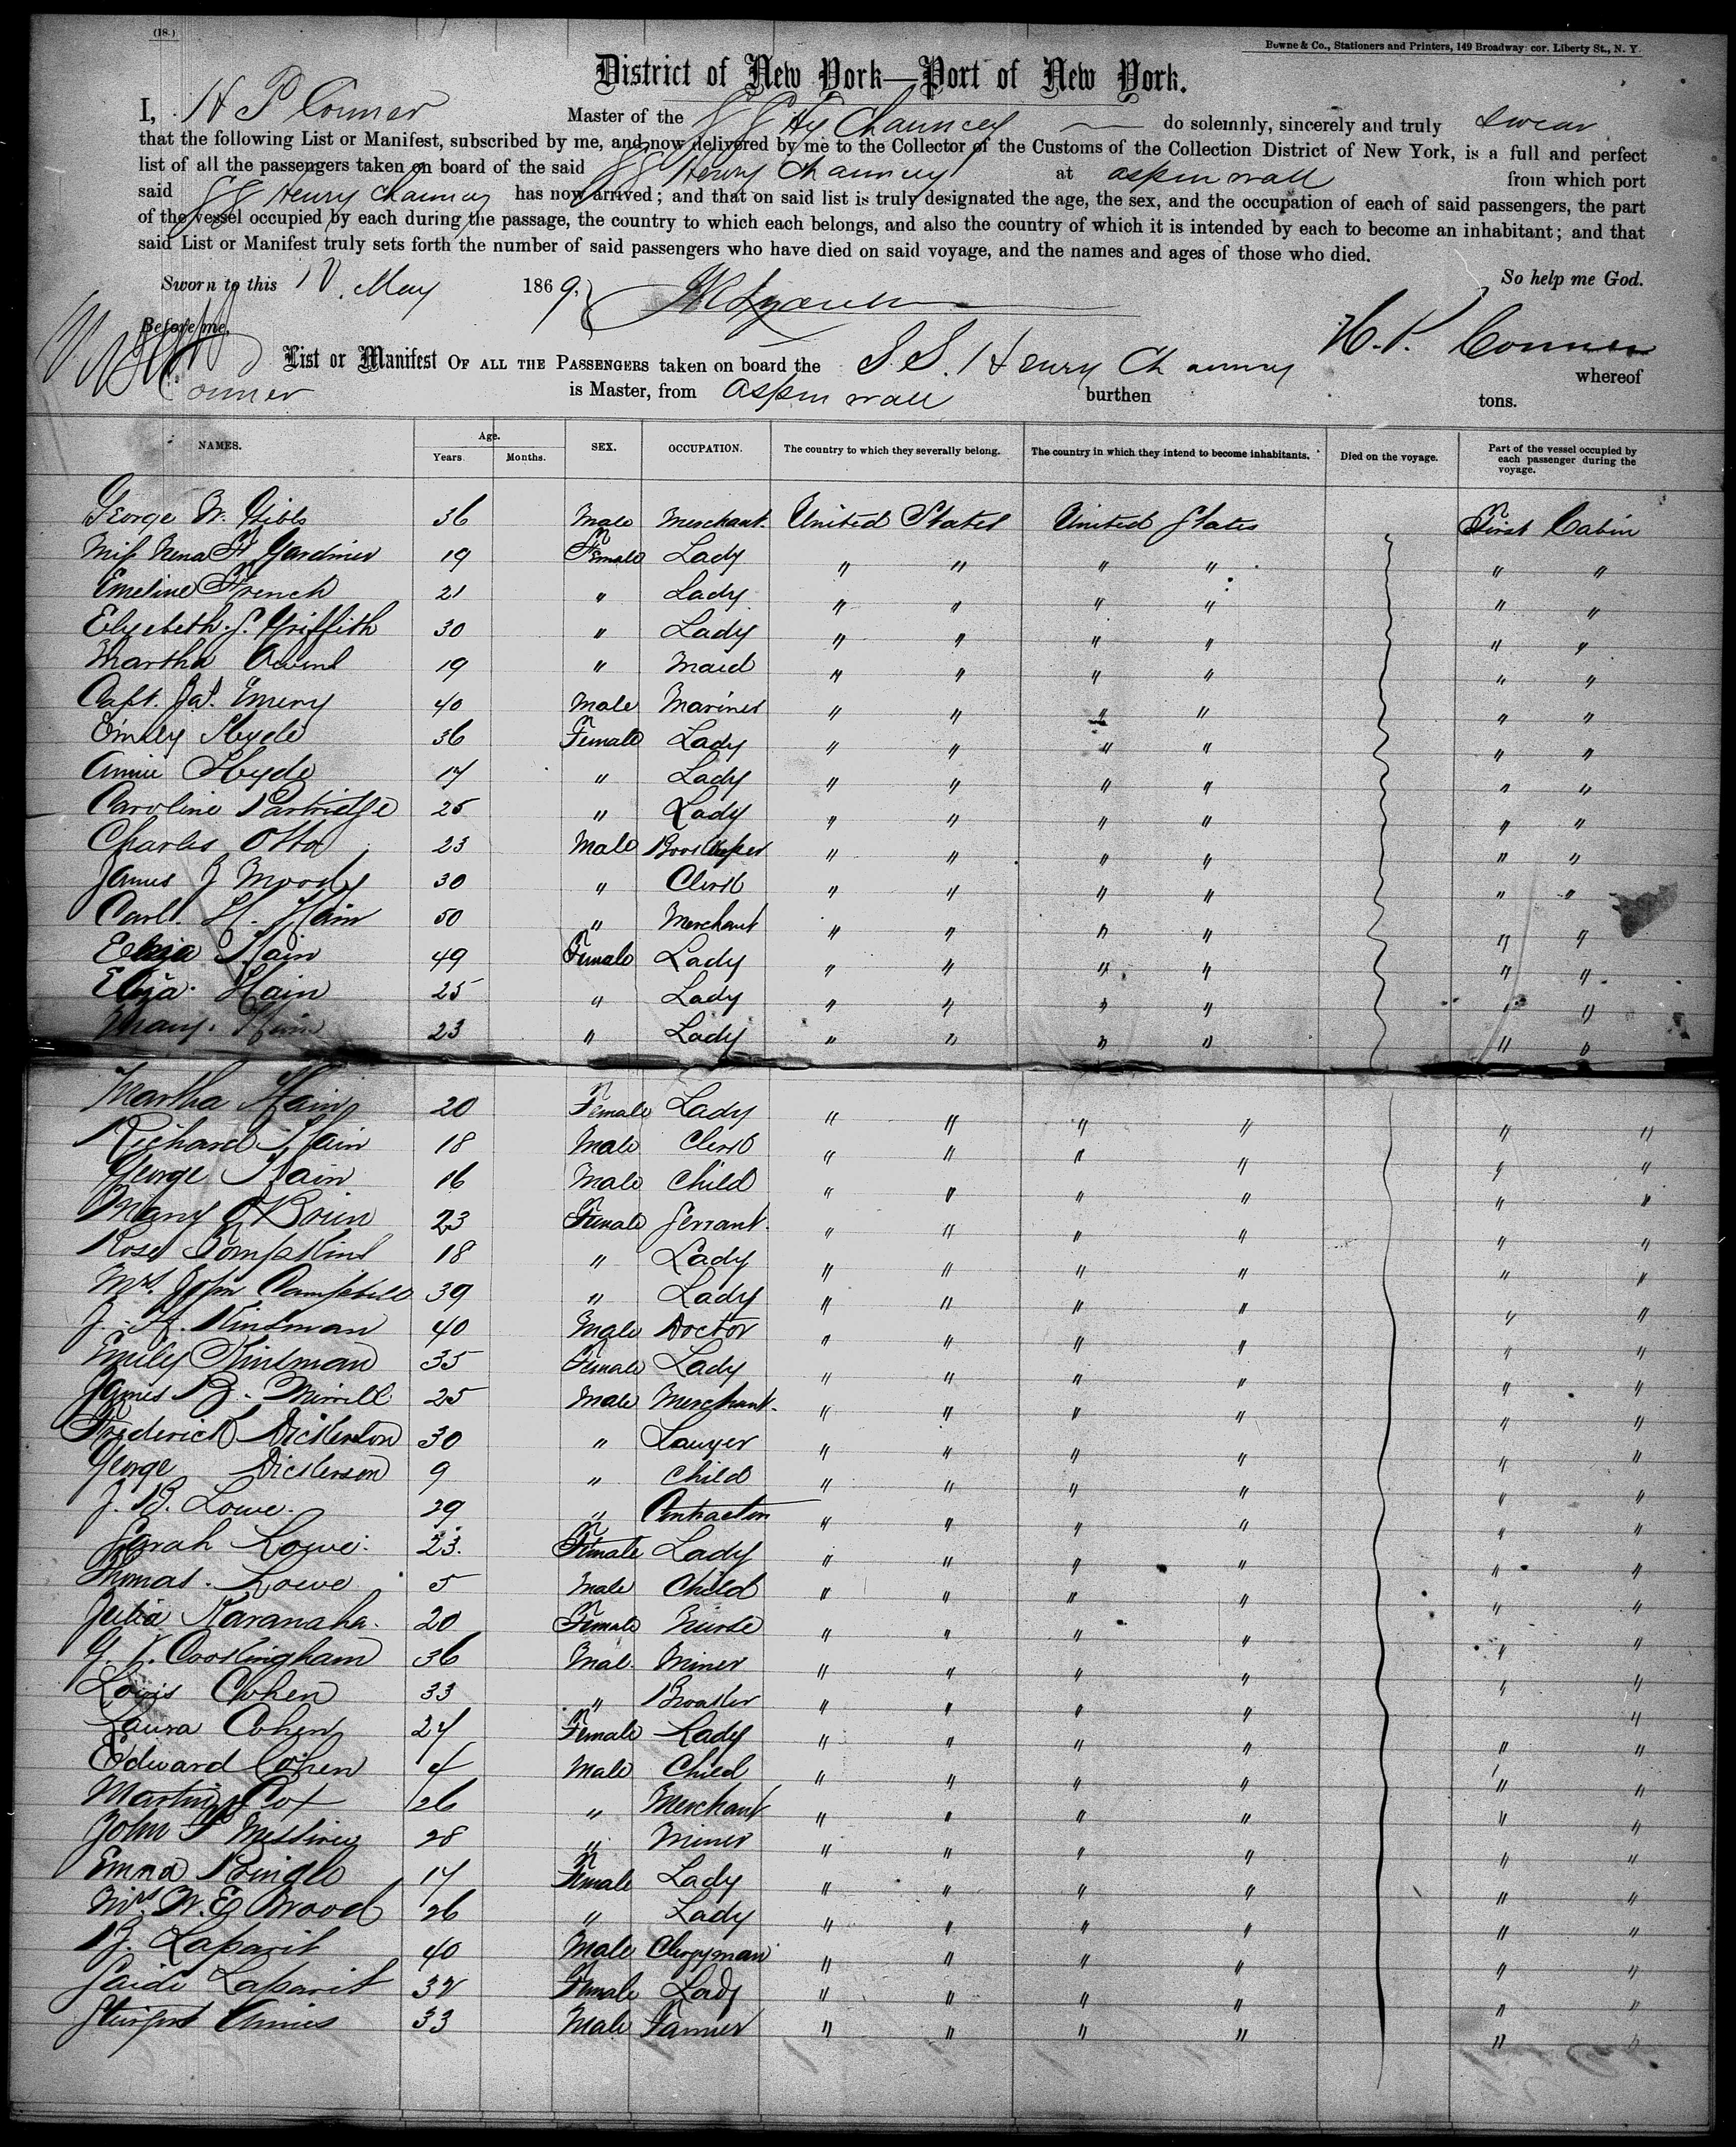 (18.)
Bowne & Co., Stationers and Printers, 149 Broadway cor. Liberty St., N. Y.
District of New York—Port of New York.
I, H P Conner Master of the SS Hy Chauncey do solemnly, sincerely and truly swear
that the following List or Manifest, subscribed by me, and now delivered by me to the Collector of the Customs of the Collection District of New York, is a full and perfect
list of all the passengers taken on board of the said SS Henry Chauncey at aspinwall from which port
said SS Henry Chauncey has now arrived; and that on said list is truly designated the age, the sex, and the occupation of each of said passengers, the part
of the vessel occupied by each during the passage, the country to which each belongs, and also the country of which it is intended by each to become an inhabitant; and that
said List or Manifest truly sets forth the number of said passengers who have died on said voyage, and the names and ages of those who died.
So help me God.
Sworn to this May 1869,
Before me,
H. P. Conner
List or Manifest OF ALL THE PASSENGERS taken on board the S.S. Henry Chauncey whereof
Conner is Master, from aspinwall burthen tons.
NAMES. Age. Years. Months. SEX. OCCUPATION. The country to which they severally belong. The country in which they intend to become inhabitants. Died on the voyage. Part of the vessel occupied by each passenger during the voyage.
George W. Gibbs 36 Male Merchant United States United States First Cabin
Miss Nena H Gardiner 19 Female Lady " " " " " "
Emeline French 21 " Lady " " " " " "
Elizebeth. S. Griffith 30 " Lady " " " " " "
Martha 19 " Maid " " " " " "
Capt. Jas. Emery 40 Male Mariner " " " " " "
Emily Hyde 36 Female Lady " " " " " "
Annie Hyde 17 " Lady " " " " " "
Caroline Partridge 25 " Lady " " " " " "
Charles Otto 23 Male Bookkeeper " " " " " "
James J Moody 30 " Clerk " " " " " "
Carl. H. Hain 50 " Merchant " " " " " "
Eliza Hain 49 Female Lady " " " " " "
Eliza. Hain 25 " Lady " " " " " "
Mary. Hain 23 " Lady " " " " " "
Martha Hain 20 Female Lady " " " " " "
Richard Hain 18 Male Clerk " " " " " "
George Hain 16 Male Child " " " " " "
Mary O'Brien 23 Female Servant " " " " " "
Rose Tompkins 18 " Lady " " " " " "
Mrs. John Campbell 39 " Lady " " " " " "
J. H. Kinsman 40 Male Doctor " " " " " "
Emily Kinsman 35 Female Lady " " " " " "
James B. Merrill 25 Male Merchant " " " " " "
Frederick Dickerson 30 " Lawyer " " " " " "
George Dickerson 9 " Child " " " " " "
J. B. Lowe. 29 " Contractor " " " " " "
Sarah Lowe. 23. Female Lady " " " " " "
Thomas. Lowe 5 Male Child " " " " " "
Julia Kavanaha. 20 Female Nurse " " " " " "
G. V. Cookingham 36 Male Miner " " " " " "
Louis Cohen 33 " Broaker " " " " "
Laura Cohen 24 Female Lady " " " " " "
Edward Cohen 4 Male Child " " " " " "
Martin Cox 26 " Merchant " " " " " "
John 28 " Miner " " " " " "
Emma Pringle 17 Female Lady " " " " " "
Mrs. W. E Wood 26 " Lady " " " " " "
Laparit 40 Male Clergyman " " " " " "
Saide Laparit 32 Female Lady " " " " " "
33 Male Farmer " " " " " "